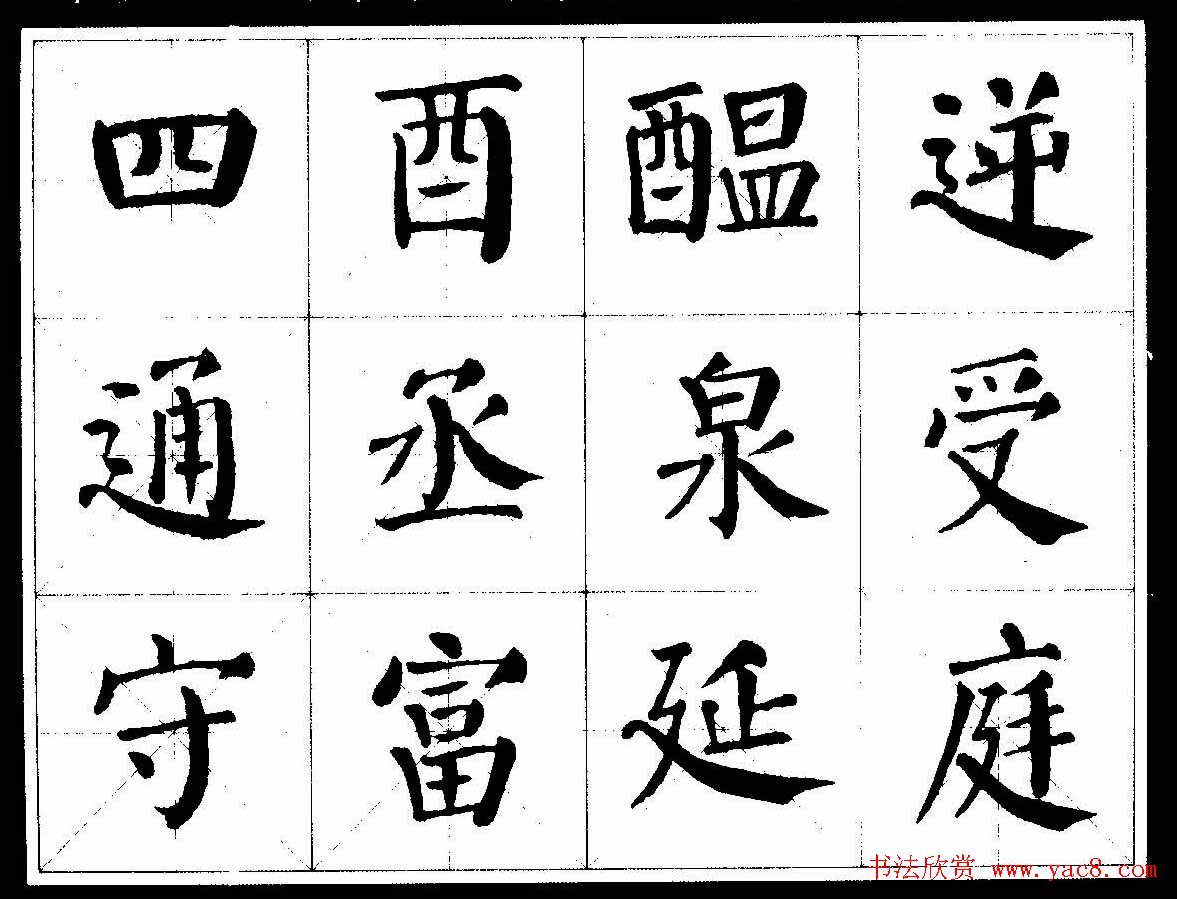 四酉醖逆
通丞泉受
守富延庭
书法欣赏 www.yac8.com